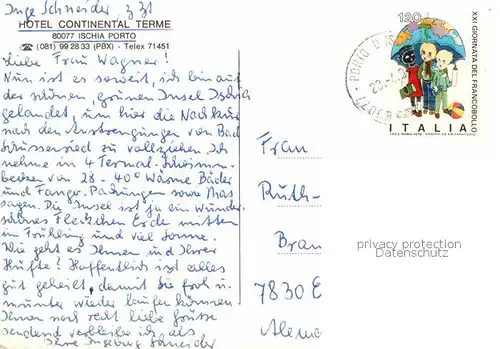 Inge Schneider, z Zt
HOTEL CONTINENTAL TERME
80077 ISCHIA PORTO
☎ (081) 99 28 33 (PBX) - Telex 71451
Liebe Frau Wagner!
Nun ist es soweit, ich bin auf
der schönen, grünen Insel Ischia
gelandet, um hier die Nachkur
nach den Anstrengungen von Bad
Schussenried zu vollziehen. Ich
nehme in 4 Termal-Schwimm-
becken von 28 - 40° Wärme Bäder
und Fango-Packungen sowie Mas
sagen. Die Insel ist ja ein wunder
schönes Fleckchen Erde mitten
im Frühling und viel Sonne.
Wie geht es Ihnen und Ihrer
Hüfte? Hoffentlich ist alles
gut geheilt, damit Sie froh u.
munter wieder laufen können
Ihnen noch recht liebe Grüsse
sendend verbleibe ich als
Ihre Ingeburg Schneider
120
XXI GIORNATA DEL FRANCOBOLLO
ITALIA
Frau
Ruth-
Brau
privacy protection
Datenschutz
7830 E
Alema